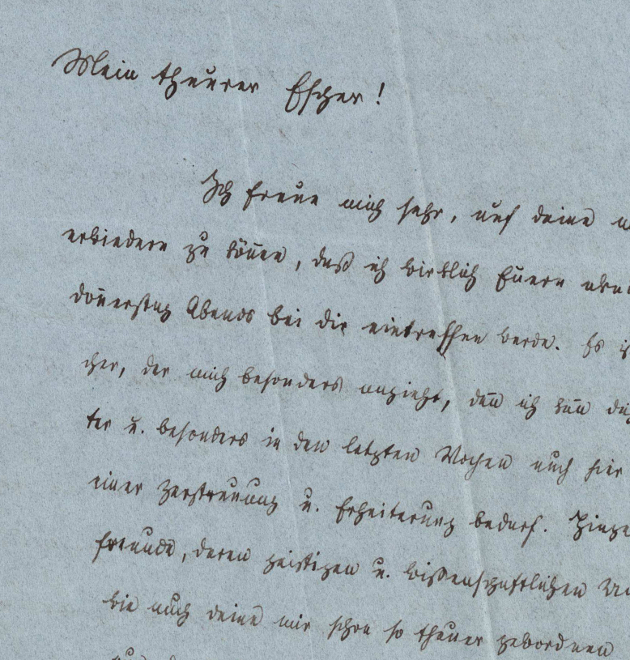 Mein theurer Escher!
Ich freue mich sehr, auf deine
erwiedern zu können, daß ich wirklich Euern
donnerstag Abends bei dir eintreffen werde. Es
cher, der mich besonders anzieht, denn ich kann
ter u. besonders in den letzten Wochen auch hier
einer Zerstreuung u. Erheiterung bedarf.
Freunde, deren geistigen u. wissenschaftlichen
wie auch deine mir schon so theuer gewordnen